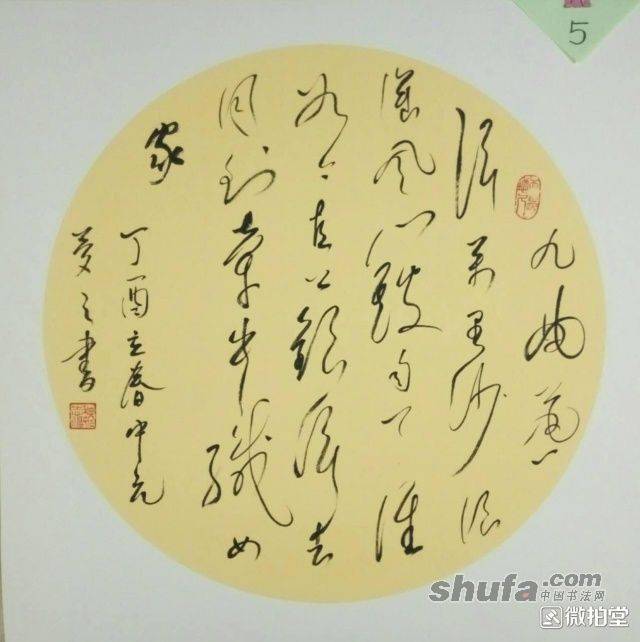 九曲黄
河萬里沙浪
淘風簸自天涯
如今直上銀河去
同到牽牛織女
家
丁酉立春中元
梦之書
5
shufa.com
中国书法网
微拍堂